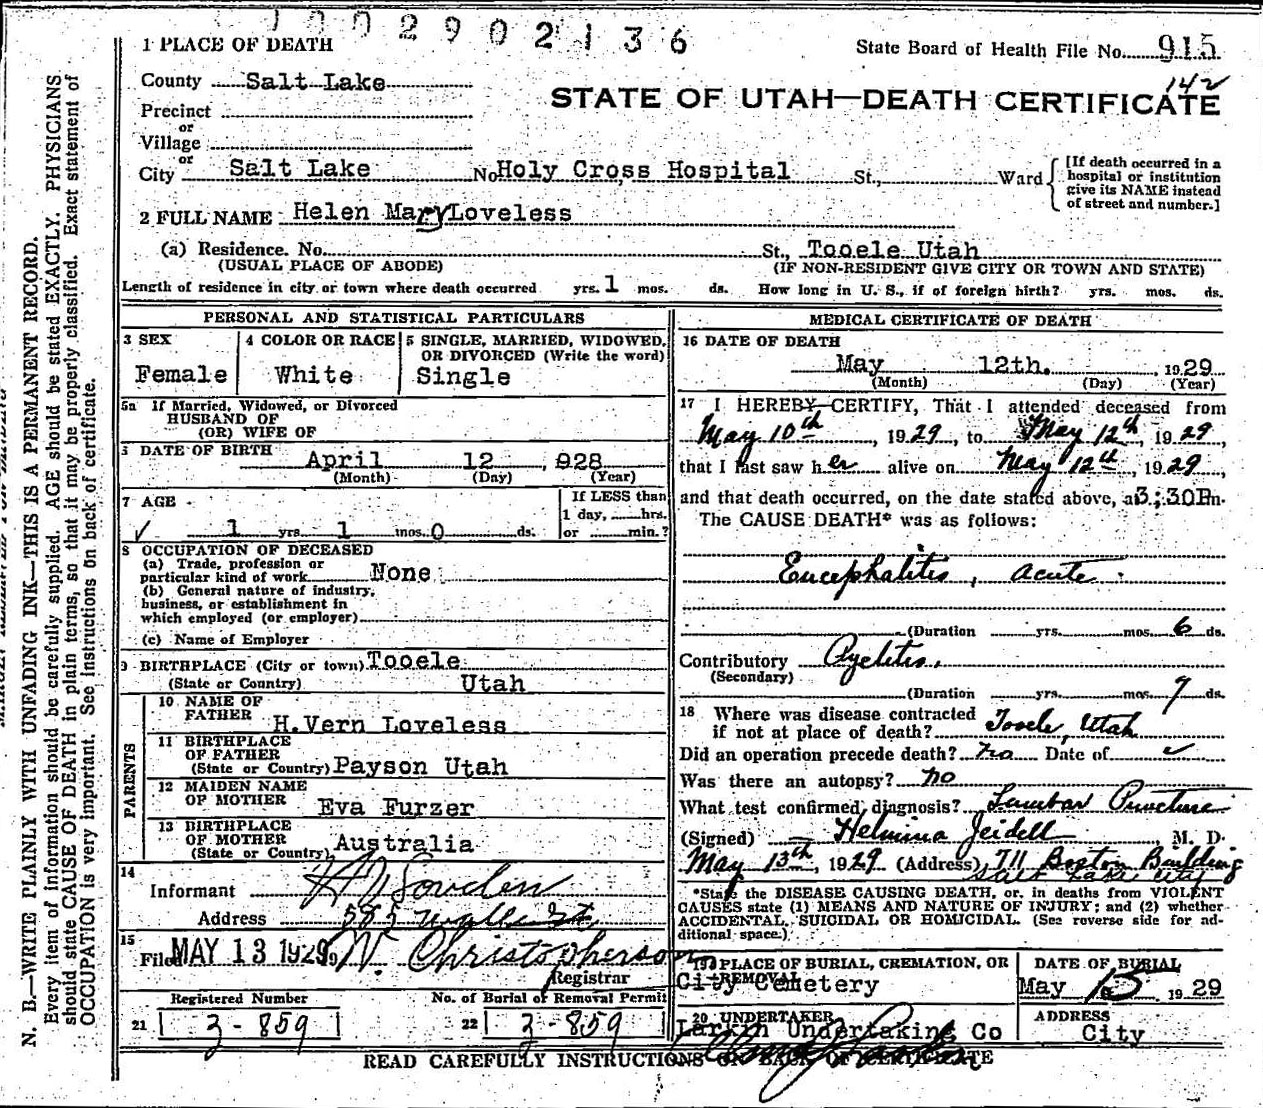 1002902136
1 PLACE OF DEATH
State Board of Health File No. 915
142
County Salt Lake
STATE OF UTAH—DEATH CERTIFICATE
Precinct
or
Village
or
City Salt Lake No Holy Cross Hospital St., Ward
[If death occurred in a
hospital or institution
give its NAME instead
of street and number.]
2 FULL NAME Helen Mary Loveless
(a) Residence. No. St., Tooele Utah
(USUAL PLACE OF ABODE) (IF NON-RESIDENT GIVE CITY OR TOWN AND STATE)
Length of residence in city or town where death occurred yrs. 1 mos. ds. How long in U. S., if of foreign birth? yrs. mos. ds.
PERSONAL AND STATISTICAL PARTICULARS
3 SEX
Female
4 COLOR OR RACE
White
5 SINGLE, MARRIED, WIDOWED,
OR DIVORCED (Write the word)
Single
5a If Married, Widowed, or Divorced
HUSBAND OF
(OR) WIFE OF
DATE OF BIRTH April 12, 928
(Month) (Day) (Year)
7 AGE
1 yrs. 1 mos. 0 ds.
If LESS than
1 day, hrs.
or min.?
8 OCCUPATION OF DECEASED
(a) Trade, profession or
particular kind of work None
(b) General nature of industry,
business, or establishment in
which employed (or employer)
(c) Name of Employer
9 BIRTHPLACE (City or town) Tooele
(State or Country) Utah
PARENTS
10 NAME OF
FATHER H. Vern Loveless
11 BIRTHPLACE
OF FATHER
(State or Country) Payson Utah
12 MAIDEN NAME
OF MOTHER Eva Furzer
13 BIRTHPLACE
OF MOTHER
(State or Country) Australia
14
Informant
Address
15
Filed MAY 13 1929 W. Christopherson
Registrar
Registered Number
21 3-859
No. of Burial or Removal Permit
22 3-859
MEDICAL CERTIFICATE OF DEATH
16 DATE OF DEATH
May 12th. 1929
(Month) (Day) (Year)
17 I HEREBY CERTIFY, That I attended deceased from
May 10th, 1929, to May 12th, 1929,
that I last saw her alive on May 12th, 1929,
and that death occurred, on the date stated above, at 3:30P m.
The CAUSE DEATH* was as follows:
Encephalitis, acute.
(Duration yrs. mos. 6 ds.
Contributory Pyelitis.
(Secondary)
(Duration yrs. mos. 9 ds.
18 Where was disease contracted
if not at place of death? Tooele, Utah
Did an operation precede death? no Date of
Was there an autopsy? no
What test confirmed diagnosis? Lumbar Puncture
(Signed) Helmina Jeidell M. D.
May 13th, 1929 (Address) 711 Boston Building
Salt Lake City
*State the DISEASE CAUSING DEATH, or, in deaths from VIOLENT
CAUSES state (1) MEANS AND NATURE OF INJURY; and (2) whether
ACCIDENTAL, SUICIDAL OR HOMICIDAL. (See reverse side for ad-
ditional space.)
19 PLACE OF BURIAL, CREMATION, OR
REMOVAL
City Cemetery
DATE OF BURIAL
May 15 1929
20 UNDERTAKER
Larkin Undertaking Co
ADDRESS
City
READ CAREFULLY INSTRUCTIONS ON BACK OF CERTIFICATE
N. B.—WRITE PLAINLY WITH UNFADING INK—THIS IS A PERMANENT RECORD.
Every item of information should be carefully supplied. AGE should be stated EXACTLY. PHYSICIANS
should state CAUSE OF DEATH in plain terms, so that it may be properly classified. Exact statement of
OCCUPATION is very important. See instructions on back of certificate.